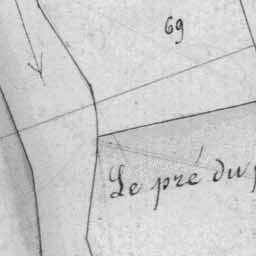 69
Le pré du